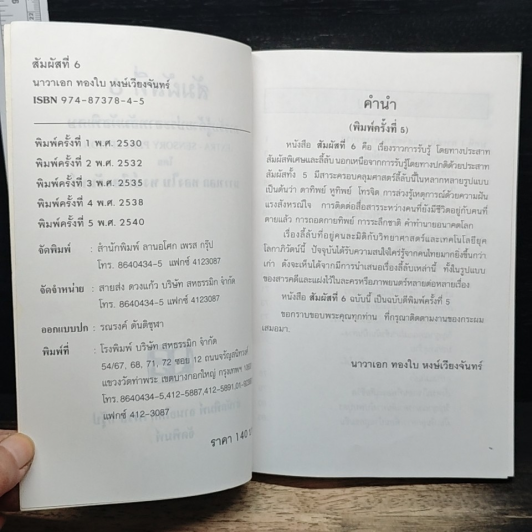 สัมผัสที่ 6
นาวาเอก ทองใบ หงษ์เวียงจันทร์
ISBN 974-87378-4-5
พิมพ์ครั้งที่ 1 พ.ศ. 2530
พิมพ์ครั้งที่ 2 พ.ศ. 2532
พิมพ์ครั้งที่ 3 พ.ศ. 2535
พิมพ์ครั้งที่ 4 พ.ศ. 2538
พิมพ์ครั้งที่ 5 พ.ศ. 2540
จัดพิมพ์ : สำนักพิมพ์ ลานอโศก เพรส กรุ๊ป
โทร. 8640434-5 แฟกซ์ 4123087
จัดจำหน่าย : สายส่ง ดวงแก้ว บริษัท สหธรรมิก จำกัด
โทร. 8640434-5 แฟกซ์ 4123087
ออกแบบปก : รณรงค์ ตันติชุฬา
พิมพ์ที่ : โรงพิมพ์ บริษัท สหธรรมิก จำกัด
54/67, 68, 71, 72 ซอย 12 ถนนจรัญสนิทวงศ์
แขวงวัดท่าพระ เขตบางกอกใหญ่ กรุงเทพฯ
โทร. 8640434-5, 412-5887, 412-5891,
แฟกซ์ 412-3087
ราคา 140
คำนำ
(พิมพ์ครั้งที่ 5)
หนังสือ สัมผัสที่ 6 คือ เรื่องราวการรับรู้ โดยทางประสาท
สัมผัสพิเศษและลี้ลับ นอกเหนือจากการรับรู้โดยทางปกติด้วยประสาท
สัมผัสทั้ง 5 มีสาระครอบคลุมศาสตร์ลี้ลับในหลากหลายรูปแบบ
เป็นต้นว่า ตาทิพย์ หูทิพย์ โทรจิต การล่วงรู้เหตุการณ์ด้วยความฝัน
แรงสังหรณ์ใจ การติดต่อสื่อสารระหว่างคนที่ยังมีชีวิตอยู่กับคนที่
ตายแล้ว การถอดกายทิพย์ การระลึกชาติ คำทำนายอนาคตโลก
เรื่องลี้ลับที่อยู่คนละมิติกับวิทยาศาสตร์และเทคโนโลยียุค
โลกาภิวัตน์นี้ ปัจจุบันได้รับความสนใจใคร่รู้จากคนไทยมากยิ่งขึ้นกว่า
เก่า ดังจะเห็นได้จากมีการนำเสนอเรื่องลี้ลับเหล่านี้ ทั้งในรูปแบบ
ของสารคดีและแฝงไว้ในละครหรือภาพยนตร์หลายต่อหลายเรื่อง
หนังสือ สัมผัสที่ 6 ฉบับนี้ เป็นฉบับตีพิมพ์ครั้งที่ 5
ขอกราบขอบพระคุณทุกท่าน ที่กรุณาติดตามงานของกระผม
เสมอมา.
นาวาเอก ทองใบ หงษ์เวียงจันทร์